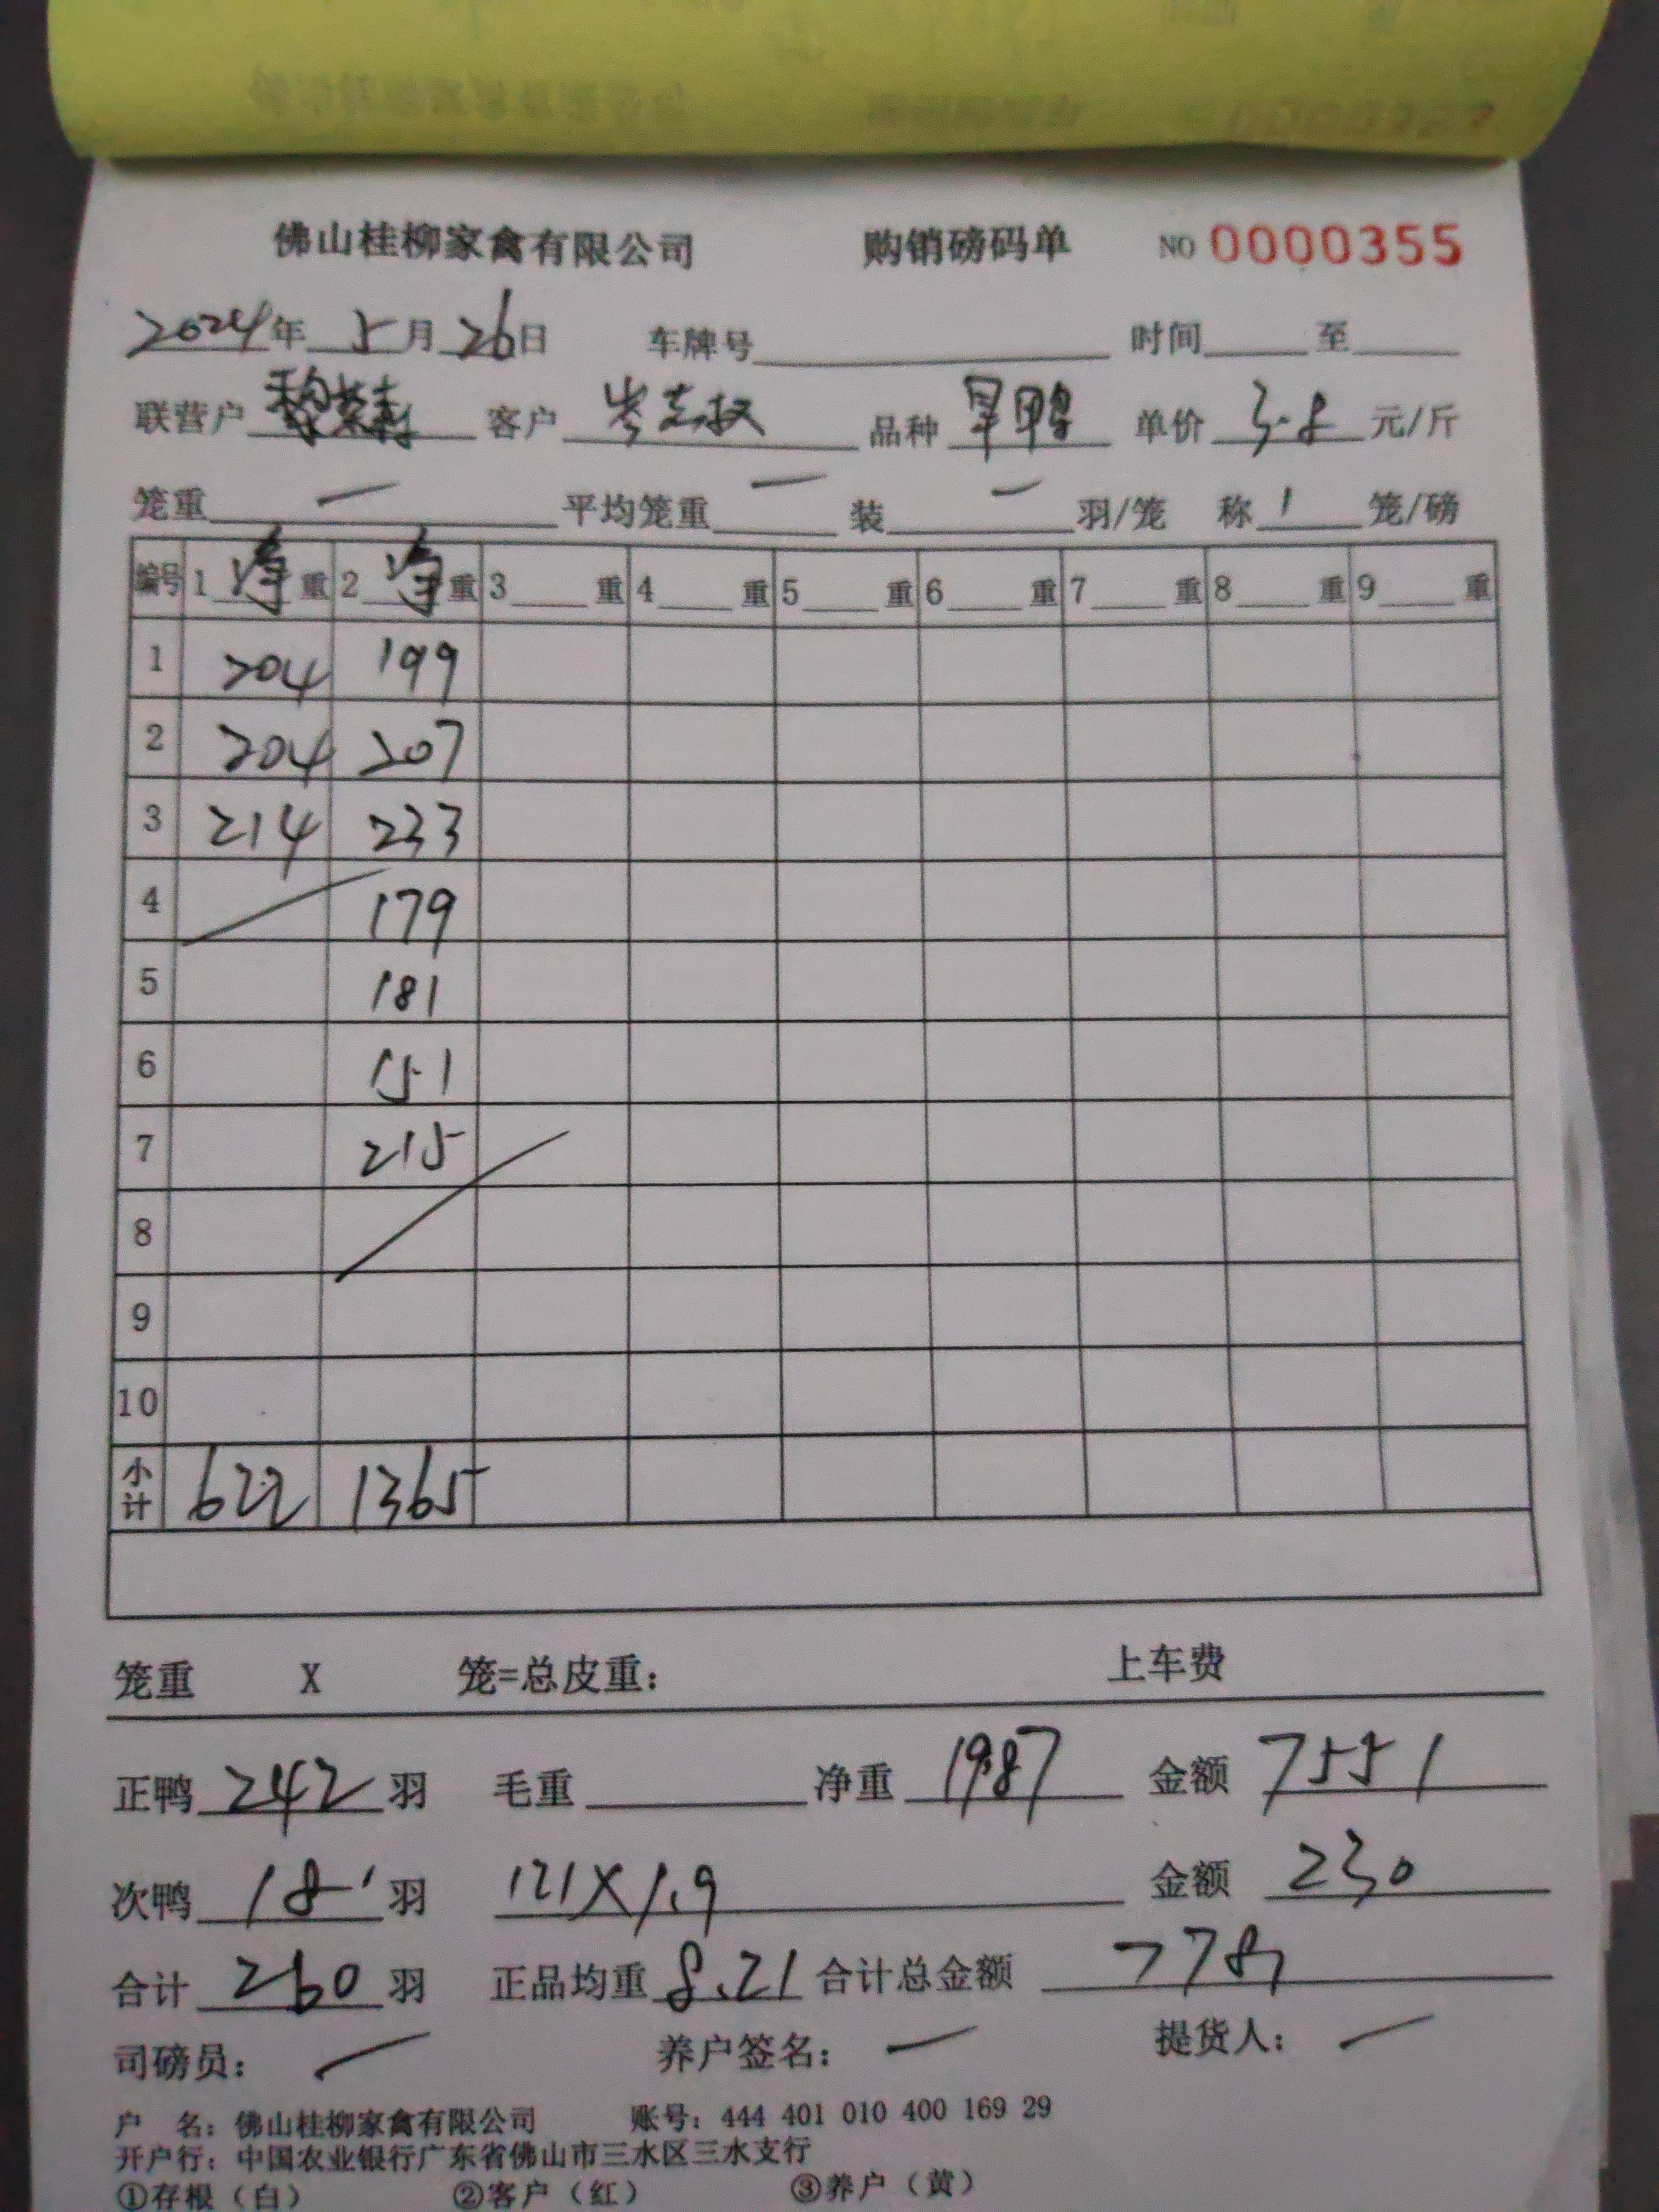 佛山桂柳家禽有限公司 购销磅码单 NO 0000355
2024年 5月 26日 车牌号 时间 至
联营户 客户 岑志权 品种 旱鸭 单价 3.8 元/斤
笼重 一 平均笼重 一 装 一 羽/笼 称 1 笼/磅
编号 1 净 重 2 净 重 3 重 4 重 5 重 6 重 7 重 8 重 9 重
1 204 199
2 204 207
3 214 233
4 179
5 181
6 151
7 215
8
9
10
小计 622 1365
笼重 X 笼=总皮重: 上车费
正鸭 242 羽 毛重 净重 1987 金额 7551
次鸭 18 羽 121X1.9 金额 230
合计 260 羽 正品均重 8.21 合计总金额
司磅员: 养户签名: 提货人:
户 名: 佛山桂柳家禽有限公司 账号: 444 401 010 400 169 29
开户行: 中国农业银行广东省佛山市三水区三水支行
①存根（白） ②客户（红） ③养户（黄）